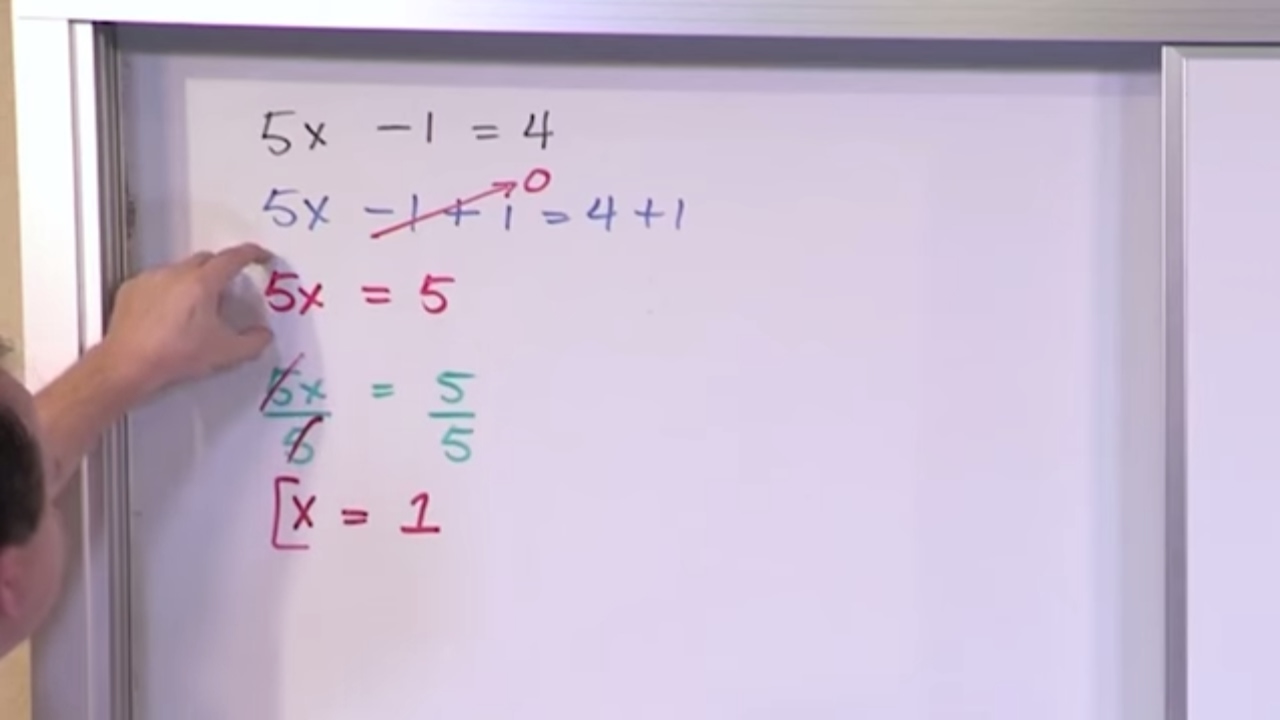 5x - 1 = 4
5x - 1 + 1 = 4 + 1
0
5x = 5
5x/5 = 5/5
x = 1